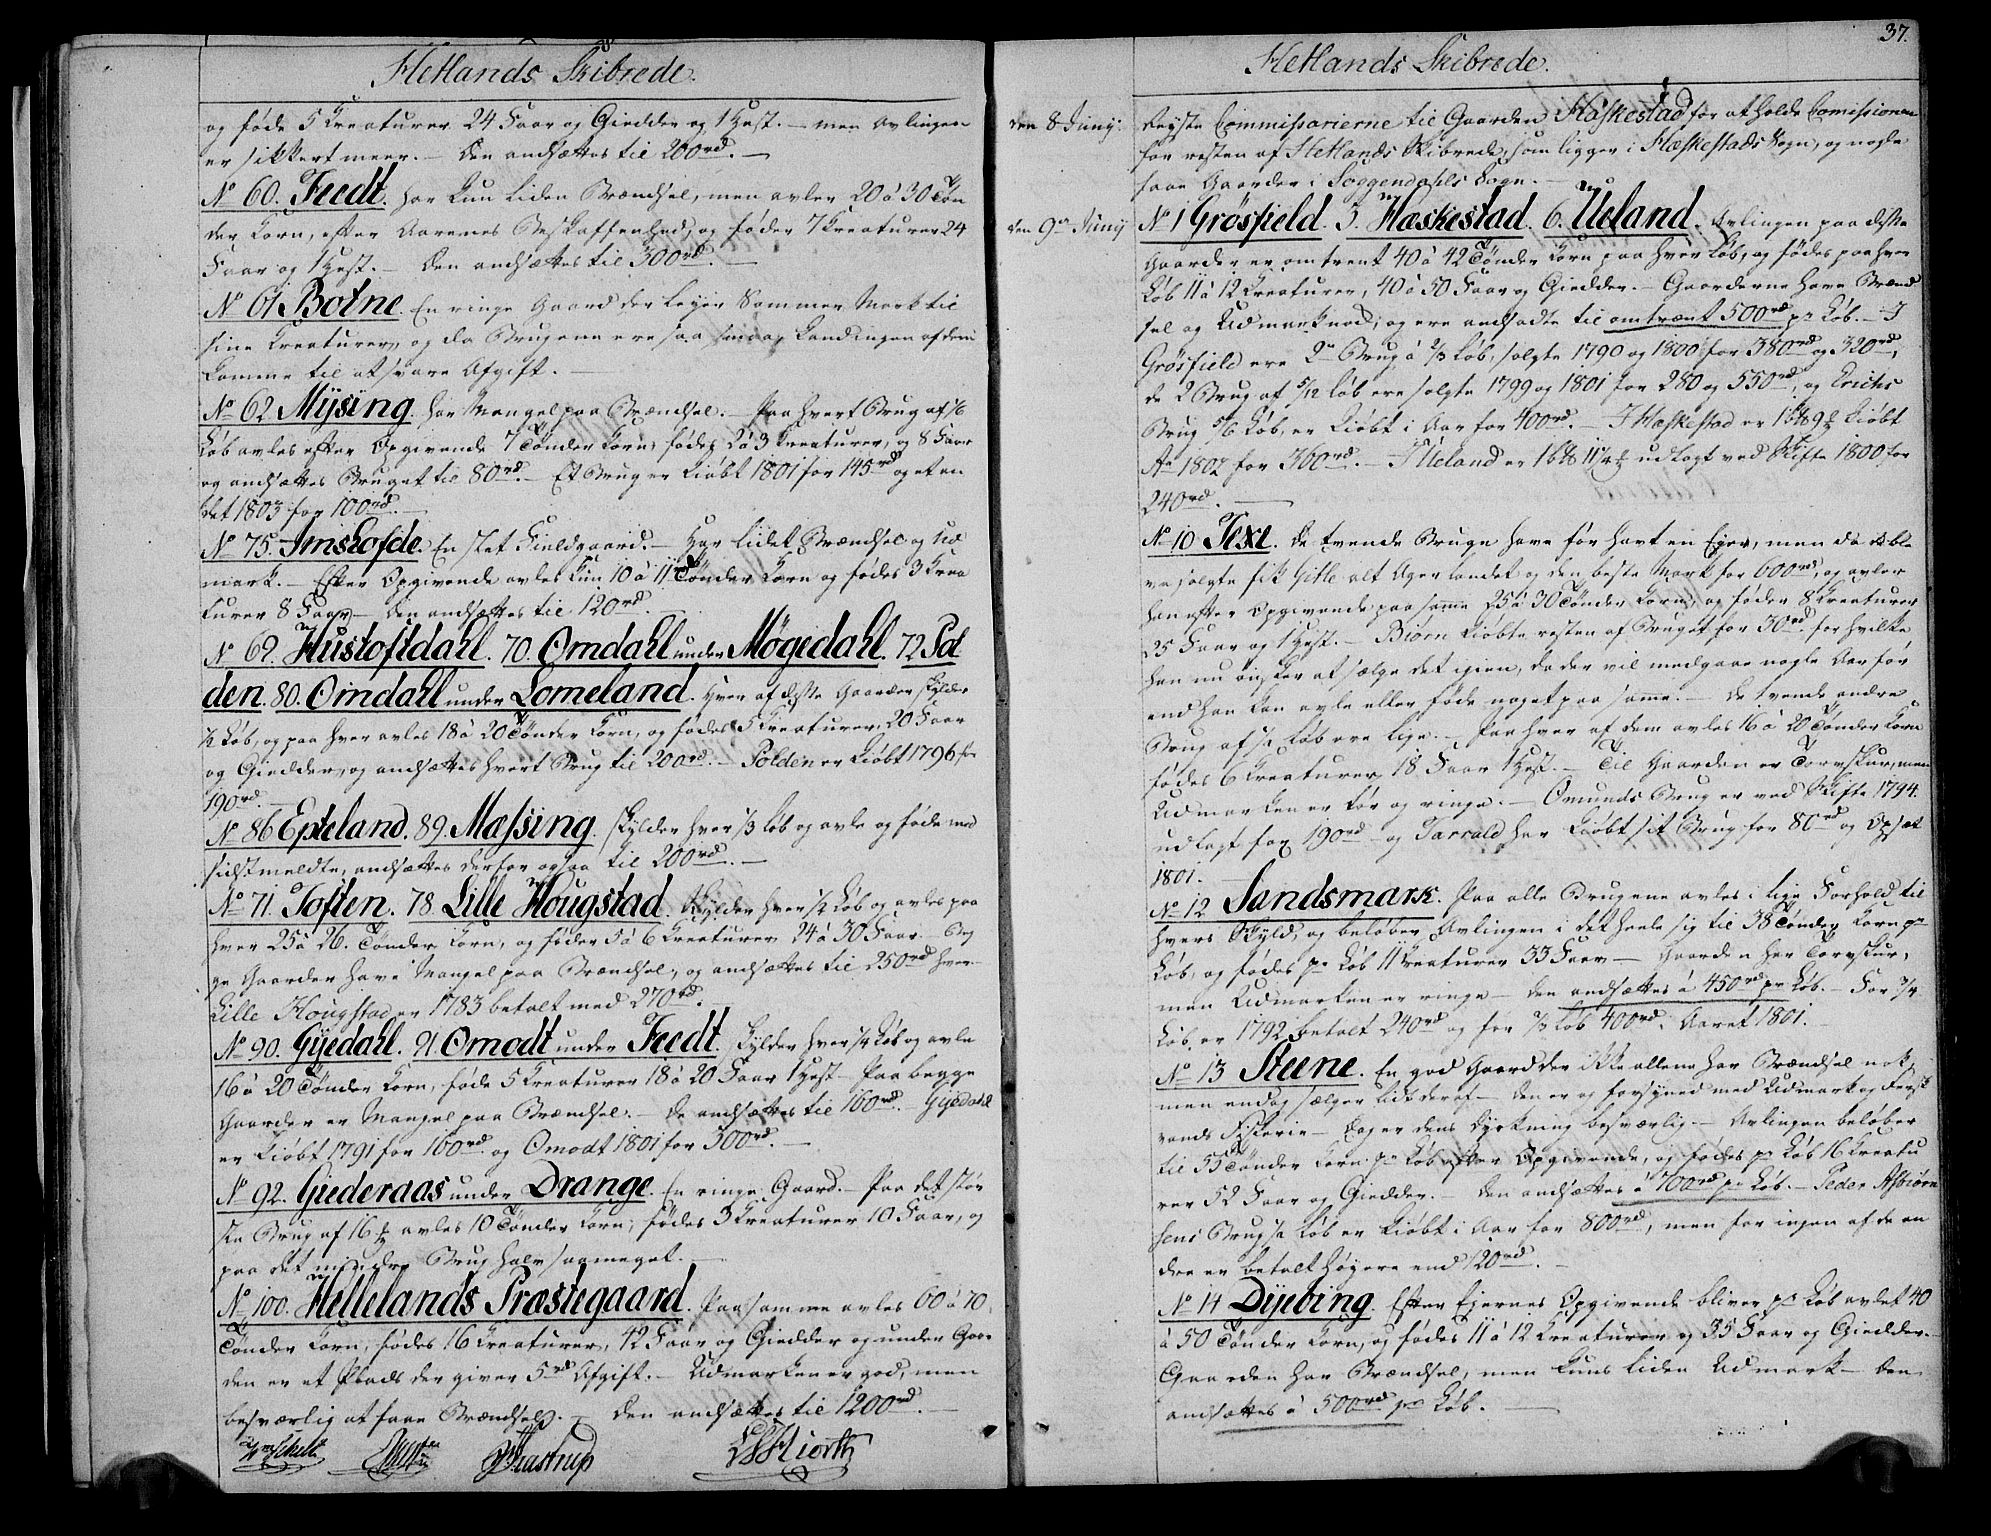 Hetlands Skibrede.
og føde 5 Kreaturer 24 Faar og Giedder og 1 Hest. – men Avlingen
er sikkert meer. – Den andsættes til 200rd. –
No 60. Feedt. har kun liden Brændsel, men avler 20 à 30 Tøn
der Korn, efter Aarenes Beskaffenhed, og føder 7 Kreaturer 24
Faar og 1 Hest. – Den andsættes til 300rd. –
No 61 Botne. En ringe Gaard der leyer Sommer Mark til
sine Kreaturer, og da Brugene ere saa smaa, kand ingen af dem
komme til at svare Afgift. –
No 62 Mysing. har Mangel paa Brændsel. – Paa hvert Brug af 1/6
Løb avles efter Opgivende 7 Tønder Korn, fødes 2 à 3 Kreaturer, og 8 Faar
og andsættes Bruget til 80rd. – Et Brug er kiøbt 1801 for 145rd og et an
det 1803 for 100rd. –
No 75. Imskofde. En slet Fieldgaard. – Har lidet Brændsel og Ud
mark. – Efter Opgivende avles kun 10 à 11 Tønder Korn og fødes 3 Krea
turer 8 Faar – Den andsættes til 120rd. –
No 69. Hustoftdahl. 70. Omdahl under Mögedahl. 72 Pol
den. 80. Omdahl under Lomeland. Hver af disse Gaarder skylder
1/2 Løb, og paa hver avles 18 à 20 Tønder Korn, og fødes 5 Kreaturer, 20 Faar
og Giedder, og andsættes hvert Brug til 200rd. – Polden er kiøbt 1796 for
190rd. –
No 86 Epteland. 89. Massing. skylder hver 1/3 Løb og avle og føde med
sidstmeldte, andsættes derfor ogsaa til 200rd. –
No 71. Toften. 78. Lille Hougstad. Skylder hver 1/2 Løb og avles paa
hver 25 à 26. Tønder Korn, og føder 5 à 6 Kreaturer 24 à 30 Faar. – Beg
ge Gaarder have Mangel paa Brændsel, og andsættes til 250rd hver
Lille Hougstad er 1783 betalt med 270rd. –
No 90. Gyedahl. 91. Omodt under Feedt. skylder hver 1/4 Løb og avle
16 à 20 Tønder Korn, føde 5 Kreaturer 18 à 20 Faar 1 Hest – Paa begge
Gaarder er Mangel paa Brændsel. – De andsættes til 160rd. Gyedahl
er kiøbt 1791 for 160rd. og Omodt 1801 for 300rd. –
No 92. Giederaas under Drange. En ringe Gaard. – Paa det stør
ste Brug af 16 avles 10 Tønder Korn, fødes 3 Kreaturer 10 Faar, og
paa det mindre Brug halv saameget. –
No 100. Hellelands Præstegaard. Paa samme avles 60 à 70
Tønder Korn, fødes 16 Kreaturer, 42 Faar og Giedder og under Gaar
den er et Plads der giver 5rd Afgift. – Udmarken er god, men
besværlig at faae Brændsel. – Den andsættes til 1200rd. –
Schelt
Hiorth
37.
Hetlands Skibrede.
den 8 Junij: Reyste Commissarierne til Gaarden Hæskestad for at holde Comissionen
for resten af Hetlands Skibrede, som ligger i Hæskestads Sogn, og nogle
faae Gaarder i Soggendahls Sogn. –
den 9de Junij No 1 Grösfield. 5. Hæskestad. 6. Ueland. Avlingen paa disse
Gaarder er omtrent 40 à 42 Tønder Korn paa hver Løb, og fødes paa hver
Løb 11 à 12 Kreaturer, 40 à 50 Faar og Giedder. – Gaarderne have Brænd
sel og Udmark nock, og ere andsadte til omtrent 500rd pr Løb. – I
Grösfield ere 2de Brug à 2/3 Løb, solgte 1790 og 1800 for 380rd og 320rd,
de 2 Brug af 5/12 Løb ere solgte 1799 og 1801 for 280 og 550rd, og Erichs
Brug 5/6 Løb, er kiøbt i Aar for 400rd. – I Hæskestad er kiøbt
Ao 1802 for 360rd. – I Ueland er udlagt ved Skifte 1800 for
240rd. –
No 10 Texe. De tvende Bruge have før havt en Eyer, men da de ble
ve solgte fik Gitle alt Agerlandet og den beste Mark for 600rd, og avler
han efter Opgivende paa samme 25 à 30 Tønder Korn, og føder 8 Kreaturer
25 Faar og 1 Hest. – Biørn kiøbte resten af Bruget for 30rd. for hvilke
han nu ønsker at sælge det igien, da der vil medgaae nogle Aar før
end han kan avle eller føde noget paa samme. – De tvende andre
Brug af 1/2 Løb ere lige. – Paa hver af dem avles 16 à 20 Tønder Korn
fødes 6 Kreaturer, 18 Faar 1 Hest. – Til Gaarden er Torvskur, men
Udmarken er tør og ringe. – Omunds Brug er ved Skifte 1794.
udlagt for 190rd – og Tarrald har kiøbt sit Brug for 80rd og Opsæt
1801. –
No 12 Sandsmark. Paa alle Brugene avles i lige Forhold til
hvers Skyld, og beløber Avlingen i det heele sig til 38 Tønder Korn pr
Løb, og fødes pr Løb 11 Kreaturer 33 Faar – Gaarden har Torvskur,
men Udmarken er ringe – Den andsættes à 450rd pr Løb. – For 3/4
Løb er 1792 betalt 240rd og for 2/3 Løb 400rd. Aaret 1801. –
No 13 Steene. En god Gaard der ikke allene har Brændsel nok,
men endog sælger lidt deraf – den er og forsyned med Udmark og fersk
vands Fiskerie – dog er dens Dyrkning besværlig – Avlingen beløber
til 55 Tønder Korn pr Løb efter Opgivende, og fødes pr Løb 16 Kreatu
rer 52 Faar og Giedder. – Den andsættes à 700rd pr Løb. – Peder Asbiørn
sens Brug 1/2 Løb er kiøbt i Aar for 800rd, men for ingen af de an
dre er betalt høyere end 120rd. –
No 14 Dyebing. Efter Eyernes Opgivende bliver pr Løb avlet 40
à 50 Tønder Korn, og fødes 11 à 12 Kreaturer og 35 Faar og Giedder. –
Gaarden har Brændsel, men kuns liden Udmark – Den
andsættes à 500rd pr Løb. –